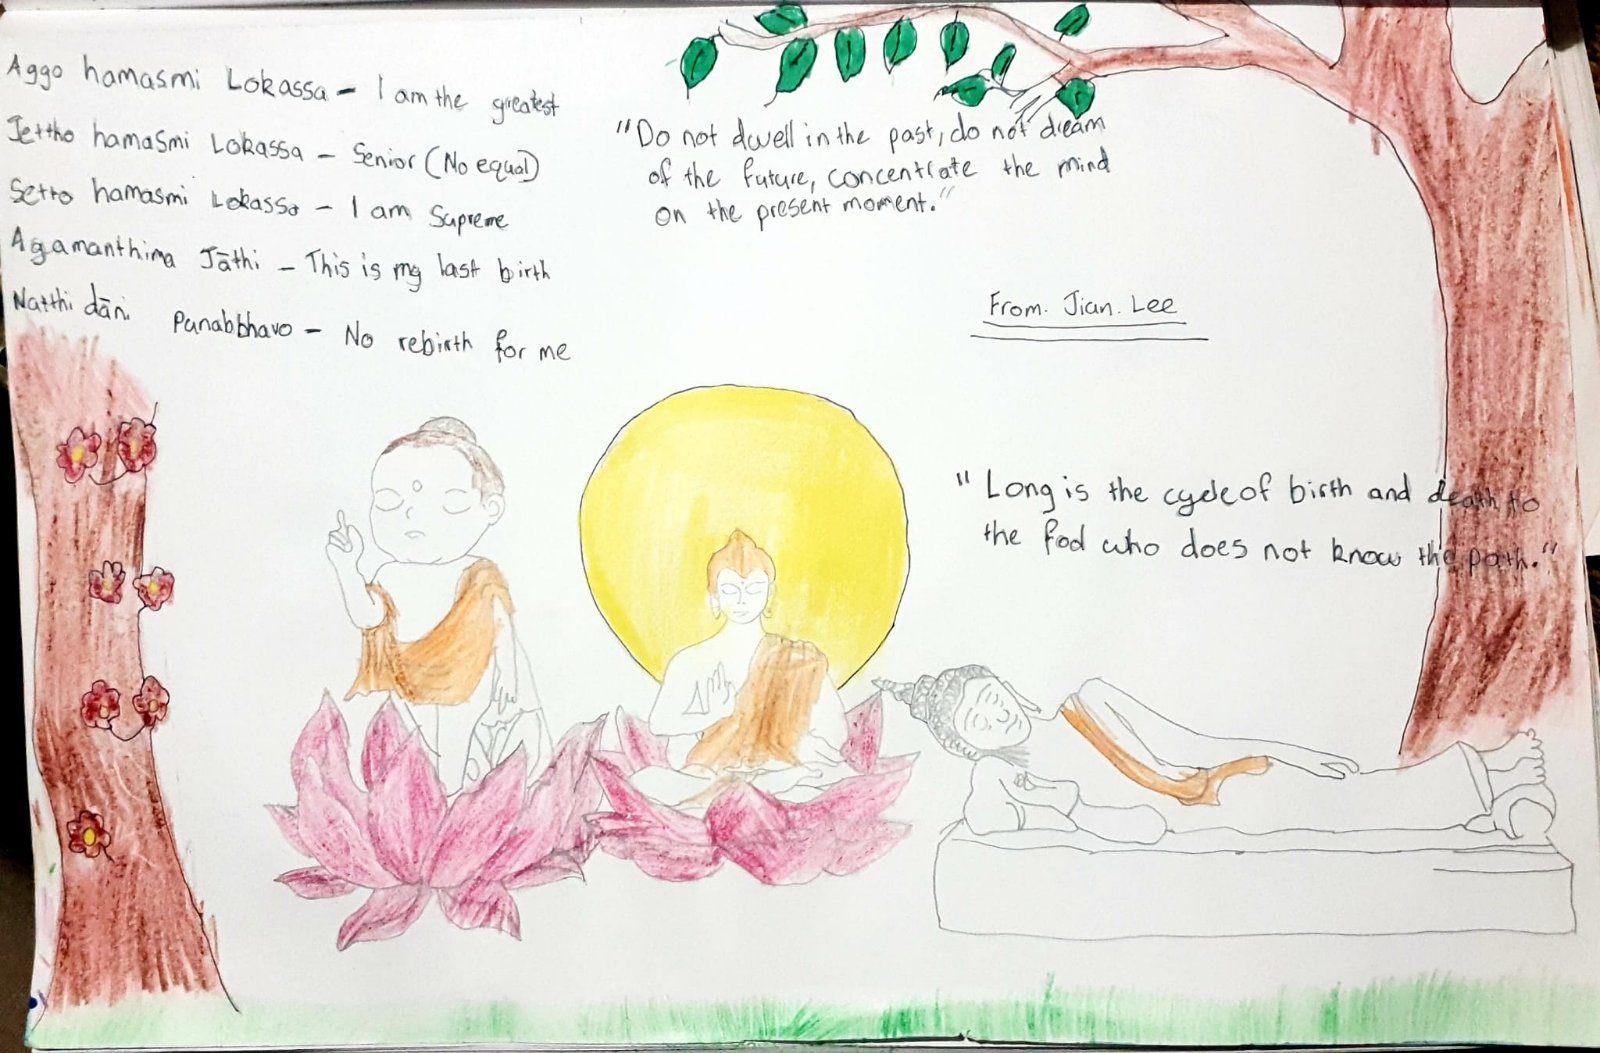 Aggo hamasmi Lokassa - I am the greatest
Jettho hamasmi Lokassa - Senior (No equal)
Setto hamasmi Lokassa - I am Supreme
Agamanthima Jāthi - This is my last birth
Natthi dāni Punabbhavo - No rebirth for me
"Do not dwell in the past, do not dream
of the future, concentrate the mind
on the present moment."
From. Jian. Lee
"Long is the cycle of birth and death to
the fod who does not know the path."